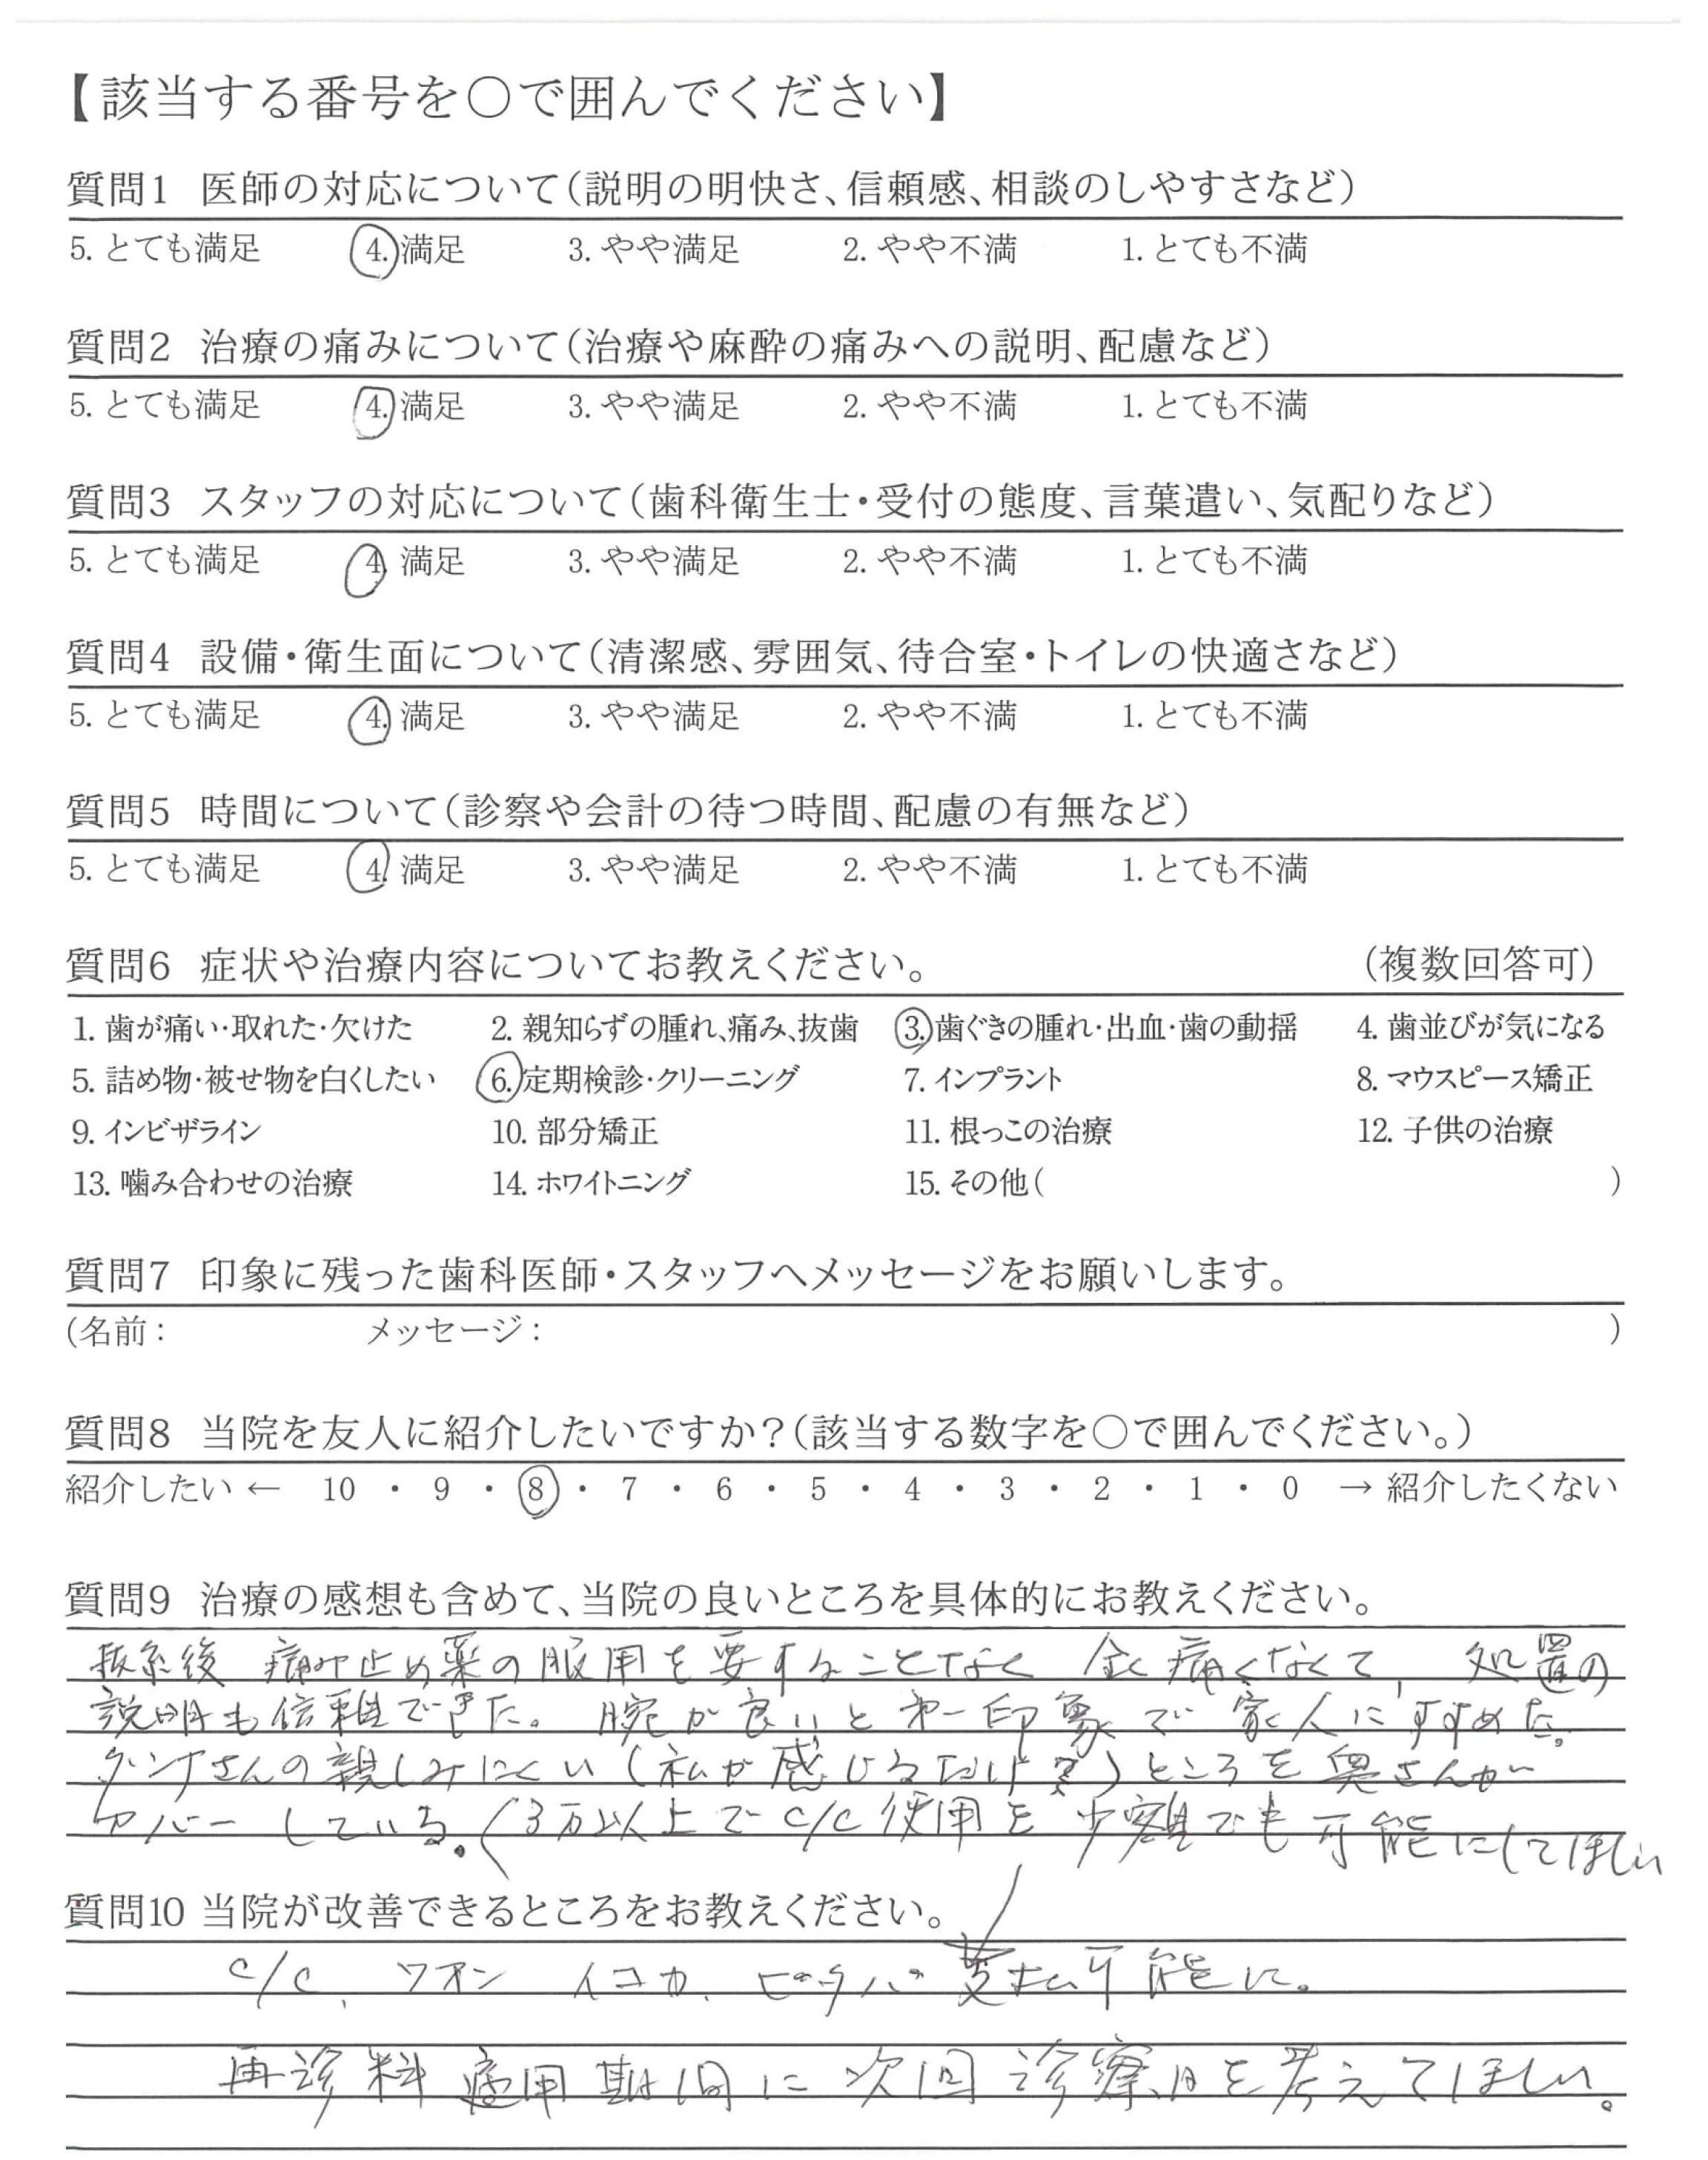 【該当する番号を〇で囲んでください】
質問1 医師の対応について(説明の明快さ、信頼感、相談のしやすさなど)
5. とても満足 4. 満足 3. やや満足 2. やや不満 1. とても不満
質問2 治療の痛みについて(治療や麻酔の痛みへの説明、配慮など)
5. とても満足 4. 満足 3. やや満足 2. やや不満 1. とても不満
質問3 スタッフの対応について(歯科衛生士・受付の態度、言葉遣い、気配りなど)
5. とても満足 4. 満足 3. やや満足 2. やや不満 1. とても不満
質問4 設備・衛生面について(清潔感、雰囲気、待合室・トイレの快適さなど)
5. とても満足 4. 満足 3. やや満足 2. やや不満 1. とても不満
質問5 時間について(診察や会計の待つ時間、配慮の有無など)
5. とても満足 4. 満足 3. やや満足 2. やや不満 1. とても不満
質問6 症状や治療内容についてお教えください。 (複数回答可)
1. 歯が痛い・取れた・欠けた 2. 親知らずの腫れ、痛み、抜歯 3. 歯ぐきの腫れ・出血・歯の動揺 4. 歯並びが気になる
5. 詰め物・被せ物を白くしたい 6. 定期検診・クリーニング 7. インプラント 8. マウスピース矯正
9. インビザライン 10. 部分矯正 11. 根っこの治療 12. 子供の治療
13. 噛み合わせの治療 14. ホワイトニング 15. その他( )
質問7 印象に残った歯科医師・スタッフへメッセージをお願いします。
(名前: メッセージ: )
質問8 当院を友人に紹介したいですか?(該当する数字を〇で囲んでください。)
紹介したい ← 10 ・ 9 ・ 8 ・ 7 ・ 6 ・ 5 ・ 4 ・ 3 ・ 2 ・ 1 ・ 0 → 紹介したくない
質問9 治療の感想も含めて、当院の良いところを具体的にお教えください。
抜糸後 痛み止め薬の服用を要することなく 全く痛くなくて、処置の
説明も信頼できた。腕が良いと第一印象で家人にすすめた。
ダンナさんの親しみにくい(私が感じるだけ?)ところを奥さんが
カバーしている。(3万以上でC/C使用を少額でも可能にしてほしい
質問10 当院が改善できるところをお教えください。
C/C、ワオン イコカ、ピタパ 支払可能に。
再診料適用期間に次回診察日を考えてほしい。